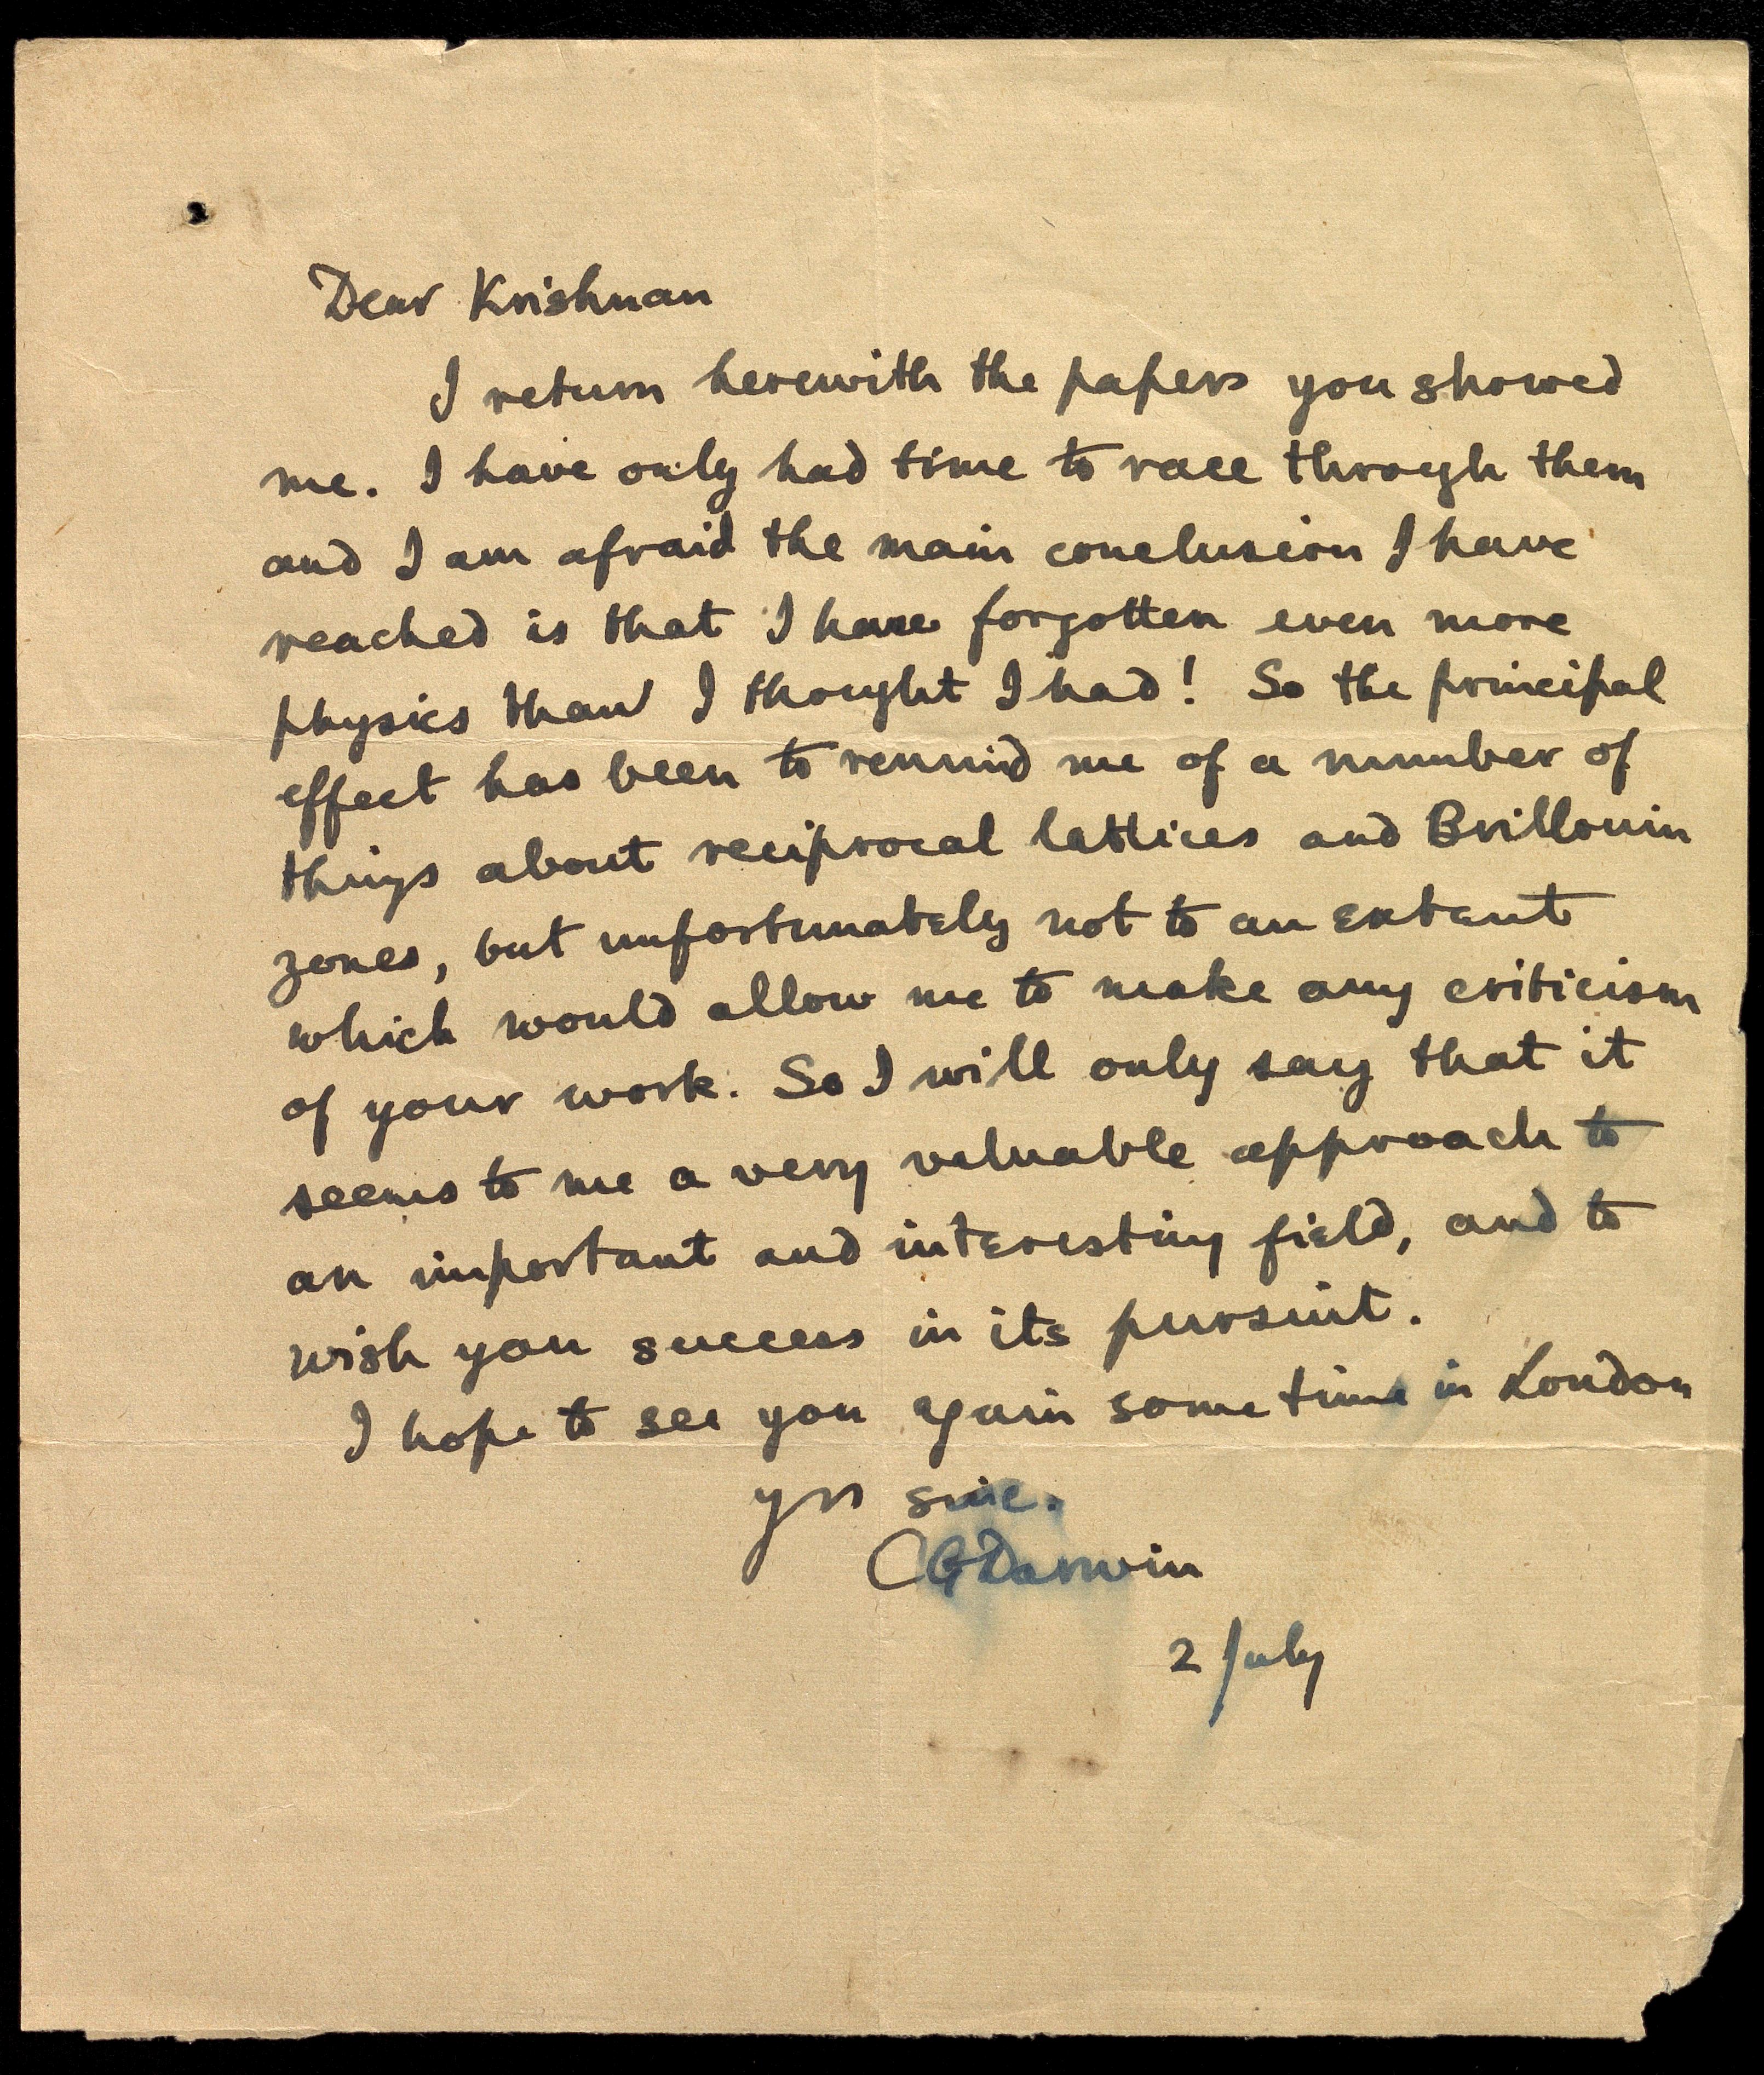 Dear Krishnan
I return herewith the papers you showed
me. I have only had time to race through them
and I am afraid the main conclusion I have
reached is that I have forgotten even more
physics than I thought I had! So the principal
effect has been to remind me of a number of
things about reciprocal lattices and Brillouin
zones, but unfortunately not to an extent
which would allow me to make any criticism
of your work. So I will only say that it
seems to me a very valuable approach to
an important and interesting field, and to
wish you success in its pursuit.
I hope to see you again some time in London
yrs sinc.
CGDarwin
2 July